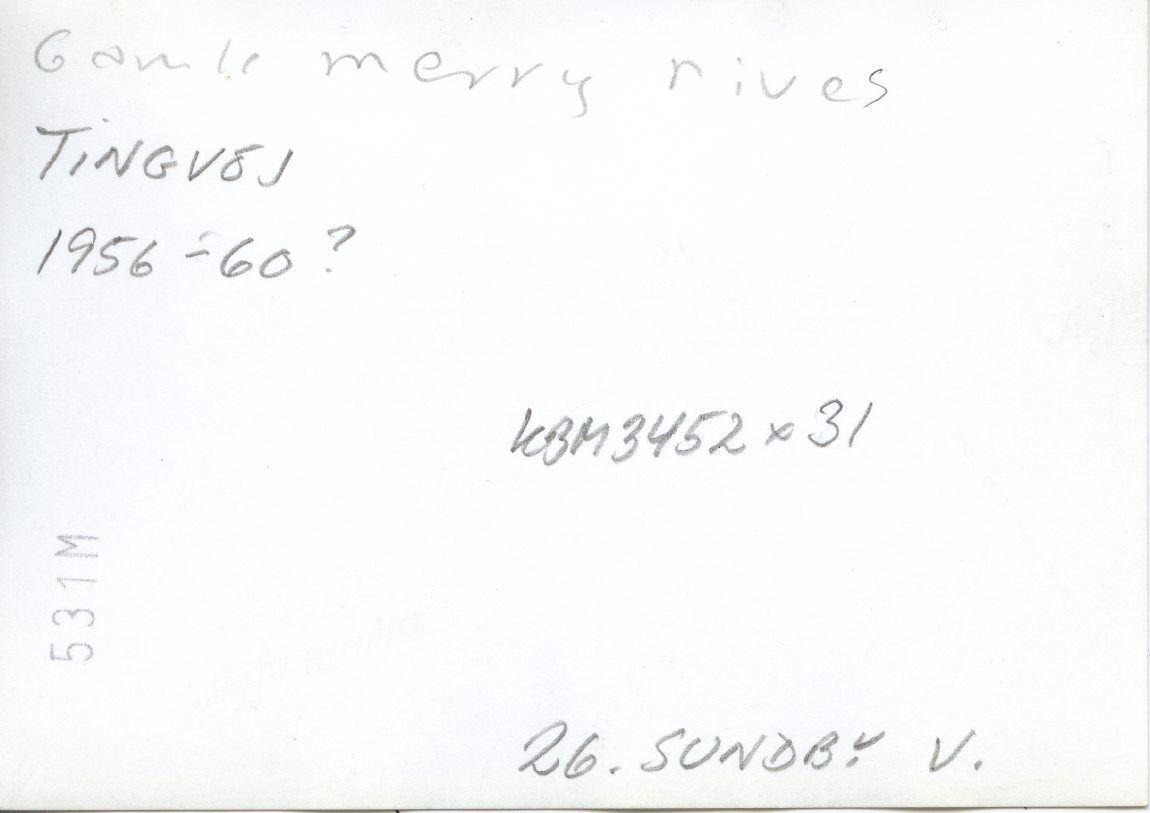 Gamle merry rives
TINGVEJ
1956-60?
KBM3452 x 31
531M
26. SUNDBY V.